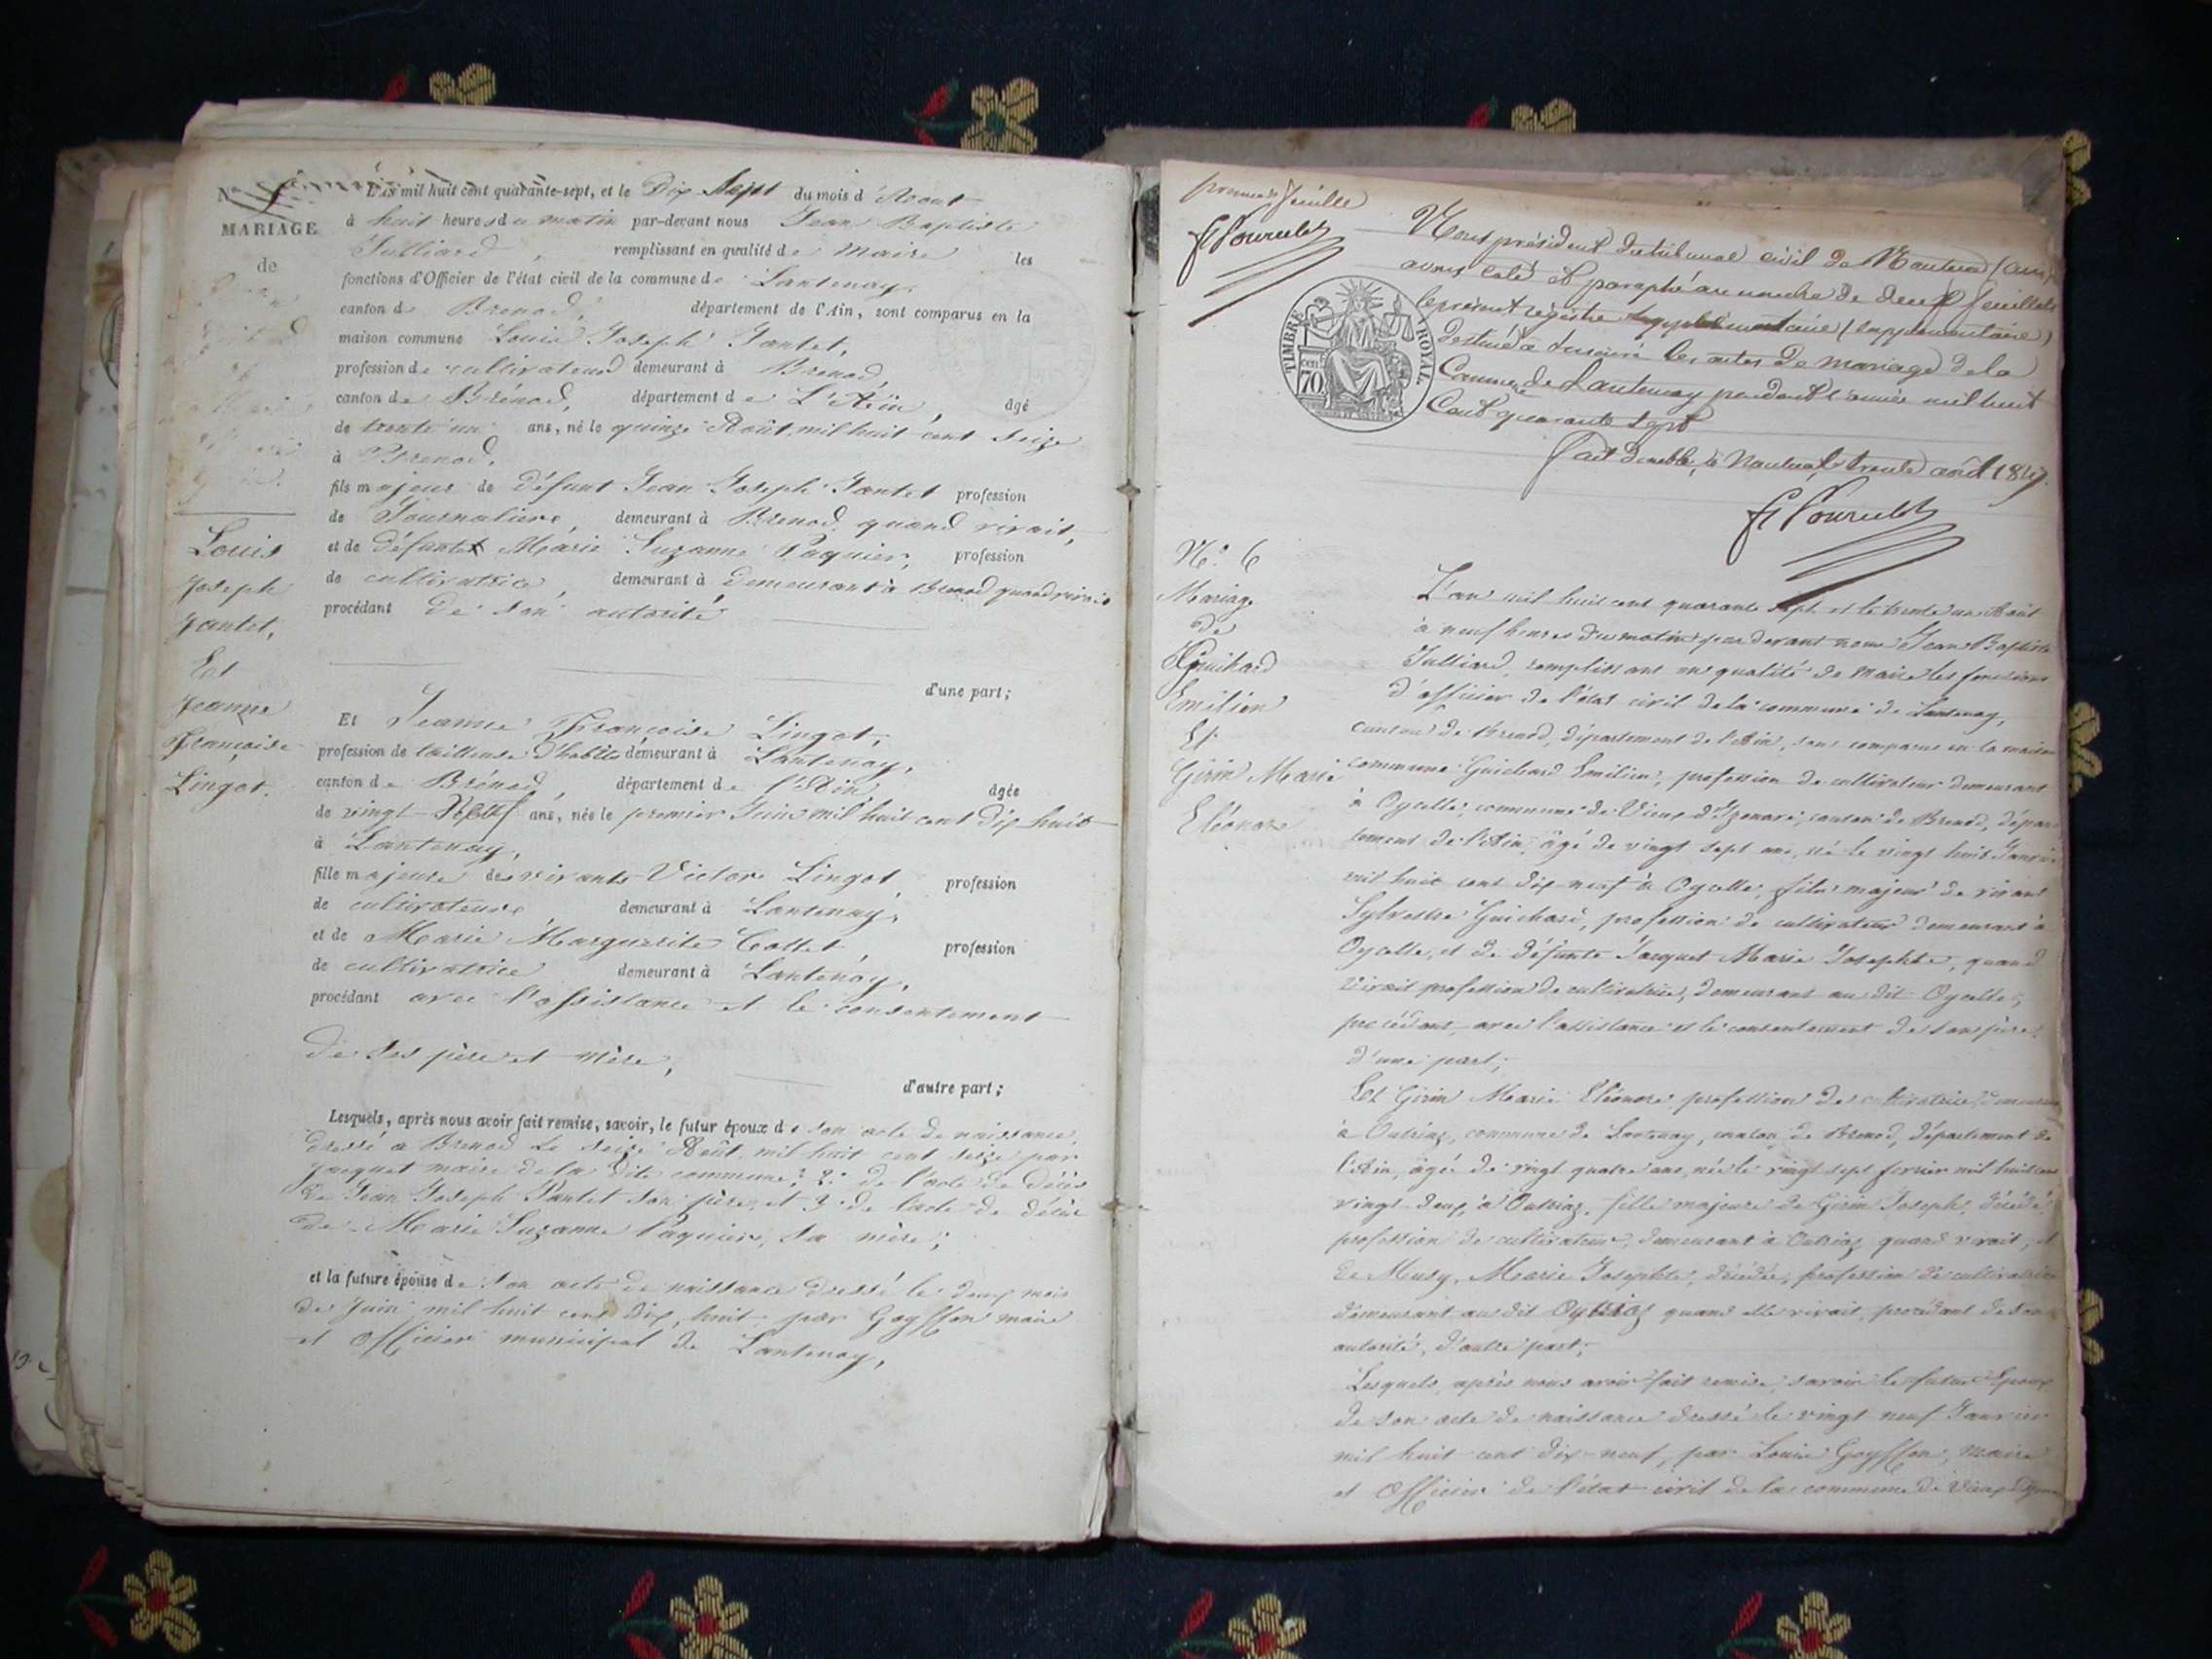 N°
L'an mil huit cent quarante-sept, et le Dix Sept du mois d'Aout
MARIAGE
à huit heures du matin par-devant nous Jean Baptiste
de
Julliard, remplissant en qualité de Maire les
fonctions d'Officier de l'état civil de la commune de Lantenay,
canton de Brénod, département de l'Ain, sont comparus en la
maison commune Louis Joseph Jantet,
profession de cultivateur demeurant à Brenod,
canton de Brénod, département de L'Ain, âgé
de trente un ans, né le quinze Août, mil huit cent seize
à Brenod,
fils majeur de défunt Jean Joseph Jantet profession
de Journaliere, demeurant à Brenod, quand vivait,
et de défunte Marie Suzanne Paquier, profession
de cultivatrice, demeurant à demeurant à Brenod quand vivait
procédant de son autorité
d'une part;
Louis
Joseph
Jantet,
Et
Jeanne
Françoise
Lingot.
Et Jeanne Françoise Lingot,
profession de tailleuse d'habits demeurant à Lantenay,
canton de Brénod, département de l'Ain, âgée
de vingt neuf ans, née le premier Juin mil huit cent dix huit
à Lantenay,
fille majeure des vivants Victor Lingot, profession
de cultivateure demeurant à Lantenay,
et de Marie Marguerite Collet, profession
de cultivatrice demeurant à Lantenay,
procédant avec l'assistance et le consentement
de ses père et mère,
d'autre part;
Lesquels, après nous avoir fait remise, savoir, le futur époux de son acte de naissance,
dressé a Brenod le seize Août, mil huit cent seize par
Jacquet maire de la dite commune; 2° de l'acte de décès
de Jean Joseph Jantet son père, et 3° de l'acte de décès
de Marie Suzanne Paquier, sa mère;
et la future épouse de son acte de naissance dressé le deux mois
de Juin mil huit cent dix huit par Goyffon maire
et Officier municipal de Lantenay,
premier feuille
Nous président du tribunal civil de Nantua (ain)
avons coté et paraphé au nombre de deux feuillets
le présent registre supplémentaire (supplementaire)
destiné à inscrire les actes de mariage de la
Commune de Lantenay pendant l'année mil huit
Cent quarante sept
Fait double, à Nantua, le trente août 1847.
TIMBRE ROYAL
70
N° 6
Mariage
de
Guichard
Emilien
Et
Girin Marie
Eléonore
L'an mil huit cent quarante sept et le trente un Août
à neuf heures du matin par devant nous Jean Baptiste
Julliard, remplissant en qualité de Maire les fonctions
d'officier de l'état civil de la commune de Lantenay,
canton de Brenod, département de l'Ain, sont comparus en la maison
commune Guichard Emilien, profession de cultivateur demeurant
à Oyselle, commune de Vieux d'Izenave, canton de Brenod, dépar
tement de l'Ain, âgé de vingt sept ans, né le vingt huit Janvier
mil huit cent dix neuf à Oyselle, fils majeur de vivant
Sylvestre Guichard, profession de cultivateur demeurant à
Oyselle, et de défunte Jacquet Marie Josephte, quand
vivait profession de cultivatrice, demeurant au dit Oyselle,
procédant avec l'assistance et le consentement de son père,
d'une part;
Et Girin Marie Eléonore profession de cultivatrice demeurant
à Outriaz, commune de Lantenay, canton de Brenod, département de
l'Ain, âgé de vingt quatre ans, née le vingt sept fevrier mil huit cent
vingt deux à Outriaz, fille majeure de Girin Joseph, décédé,
profession de cultivateur, demeurant à Outriaz quand vivait, et
de Musy, Marie Josephte, décédée, profession de cultivatrice
demeurant au dit Outriaz quand elle vivait, procédant de son
autorité, d'autre part;
Lesquels, après nous avoir fait remise, savoir le futur Epoux
de son acte de naissance dressé le vingt neuf Janvier
mil huit cent dix neuf, par Louis Goyffon, Maire
et Officier de l'état civil de la commune de Vieux d'Izenave